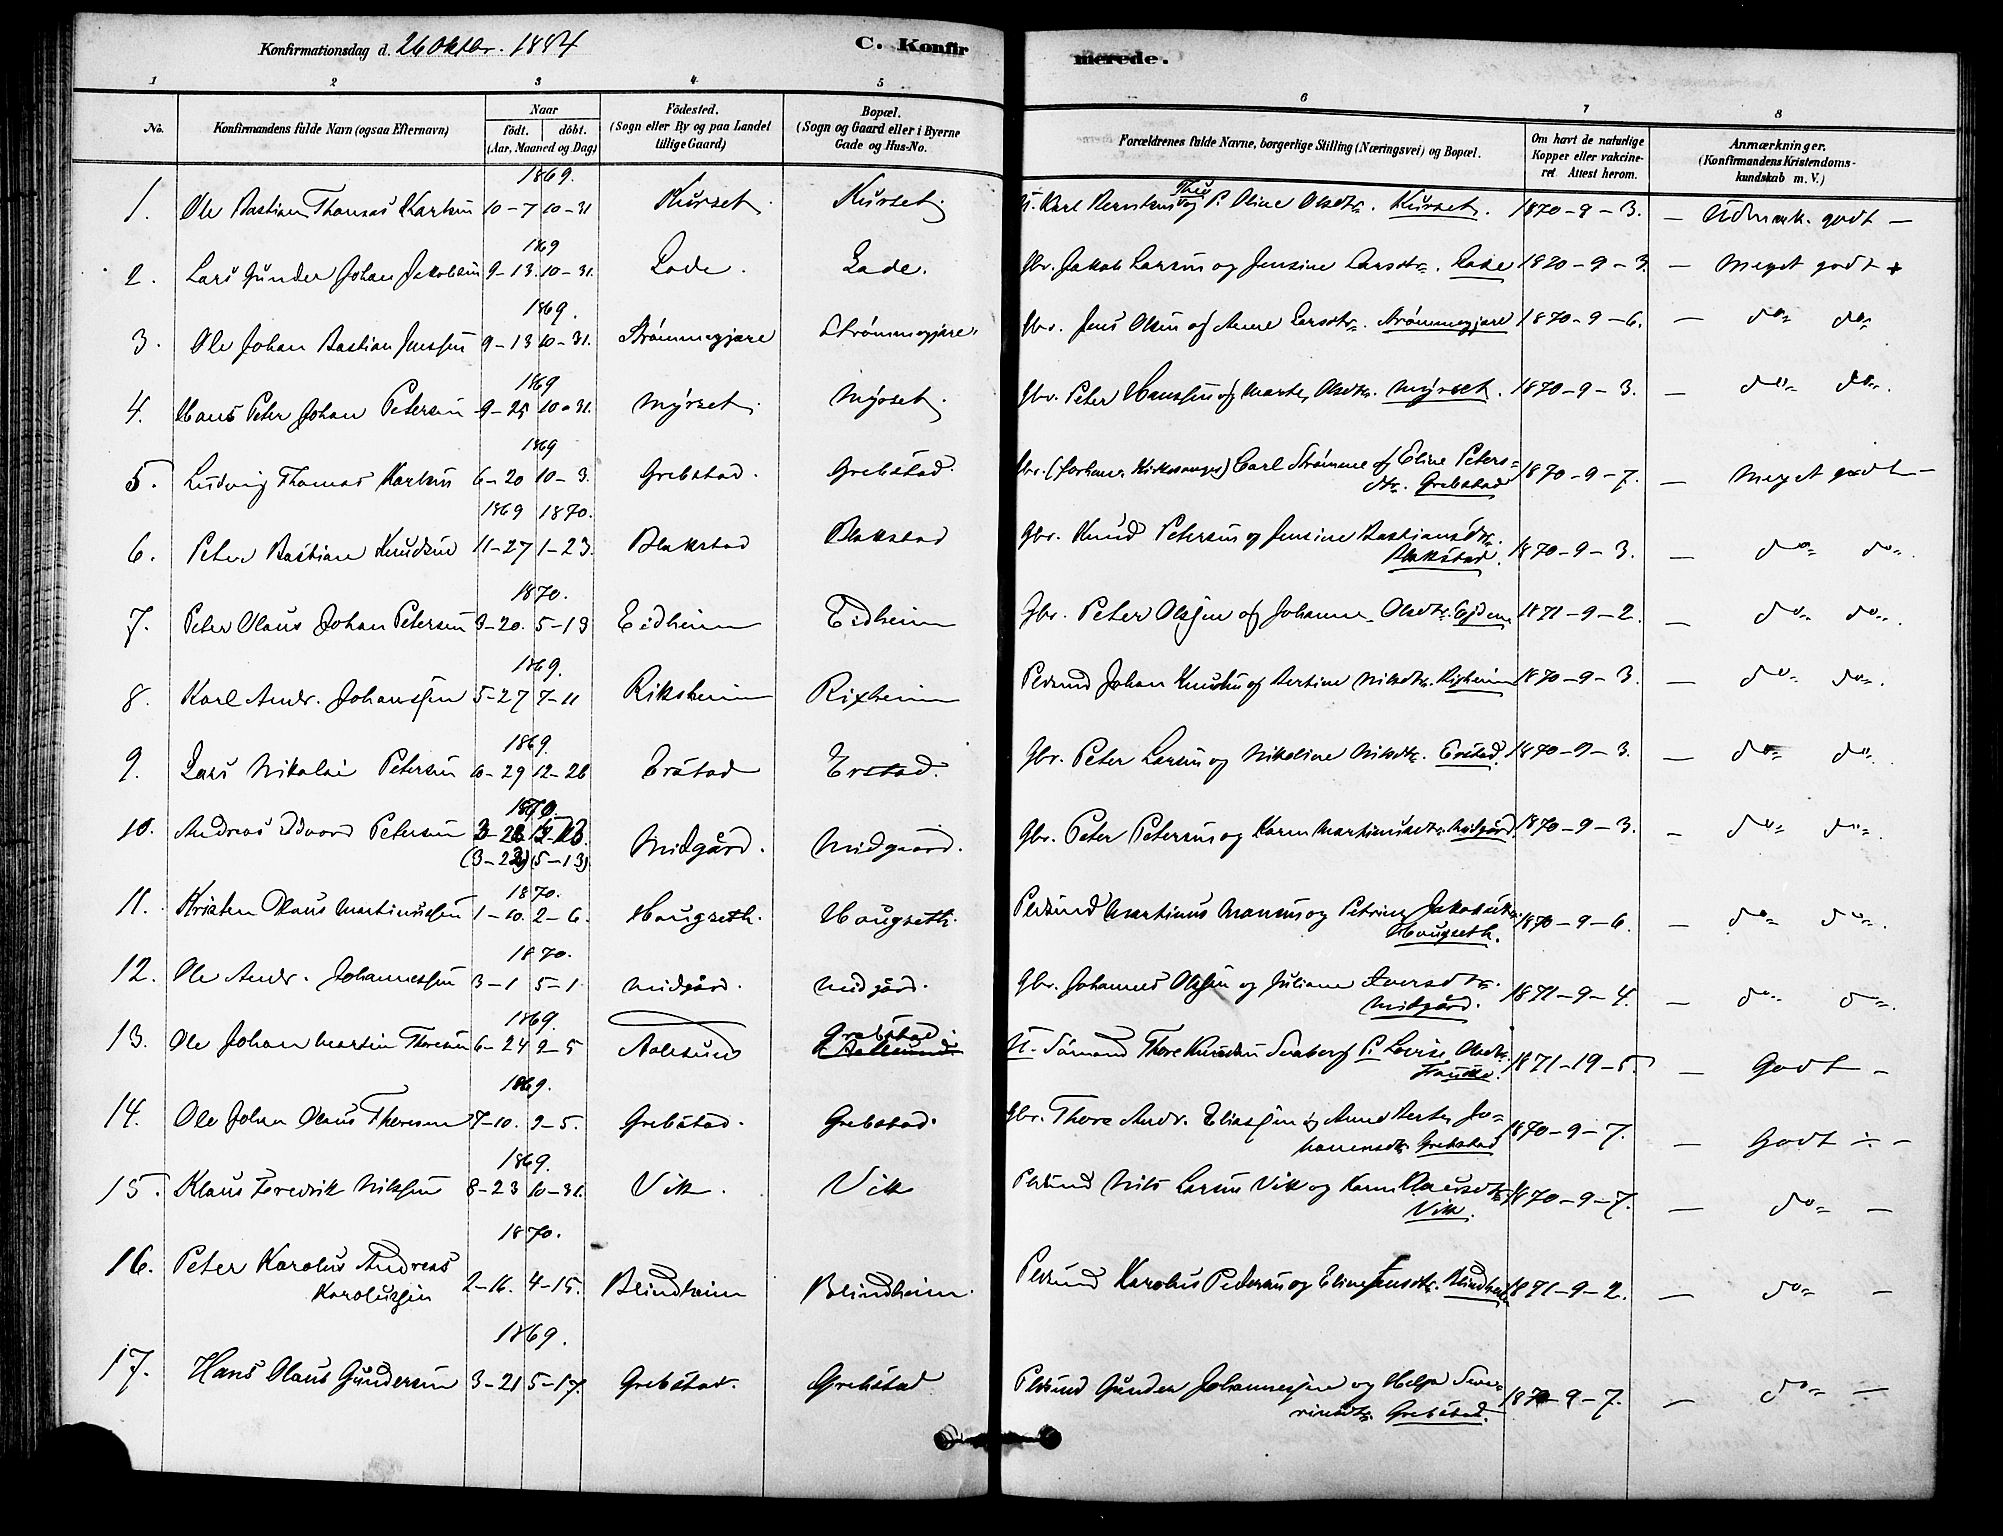 Konfirmationsdag d. 26 Oktbr. 1884
C. Konfir
merede.
1 2 3 4 5 6 7 8
No. Konfirmandens fulde Navn (ogsaa Efternavn) Naar födt. döbt. (Aar, Maaned og Dag)
Födested. (Sogn eller By og paa Landet tillige Gaard)
Bopæl. (Sogn og Gaard eller i Byerne Gade og Hus-No.
Forældrenes fulde Navne, borgerlige Stilling (Næringsvei) og Bopæl.
Om havt de naturlige Kopper eller vakcineret Attest herom.
Anmærkninger. (Konfirmandens Kristendomskundskab m. V.)
1869.
1. Ole Bastian Thomas Karlsen 10-7 10-31 Kurset. Kurset. U. Karl og P. Oline Olsdtr. Kurset. 1870-9-3. — Udmærk. godt —
1869
2. Lars Gunder Johan Jakobsen 9-13. 10-31. Lade. Lade. Gbr. Jakob Larsen og Jensine Larsdtr. Lade 1820-9-3. — Meget godt +
1869.
3. Ole Johan Bastian Jenssen 9-13 10-31. Strømmegjære Strømmegjære. Gbr. Jens Olsen og Anne Larsdtr. Strømmegjære 1870-9-6. — do do
1869
4. Hans Peter Johan Petersen 9-25 10-31. Myrset. Myrset. Gbr. Peter Hanssen og Marte Olsdtr. Myrset. 1870-9-3. — do do
1869
5. Ludvig Thomas Karlsen 6-20 10-3. Grebstad. Grebstad. Gbr. (forhenv. Kirkesanger) Carl Strømme og Eline Peters-
dtr. Grebstad 1870-9-7. — Meget godt —
1869 1870.
6. Peter Bastian Knudsen 11-27 1-23. Blakstad Blakstad Gbr. Knud Petersen og Jensine Bastiansdtr.
Blakstad. 1870-9-3. — do do
1870.
7. Peter Olaus Johan Petersen 3-20. 5-13 Eidheim Eidheim Gbr. Peter Olssen og Johanne Olsdtr. 1871-9-2. — do do
1869.
8. Karl Andr. Johanssen 5-27 7-11 Riksheim Rixheim Plsund Johan Knudsen og Bertine Nilsdtr. Rixheim 1870-9-3. — do do
1869.
9. Lars Nikolai Petersen 10-29 12-26 Erstad Erstad. Gbr. Peter Larsen og Nikoline Nilsdtr. Erstad. 1870-9-3. — do do
1870.
10. Andreas Edvard Petersen
(3-23) (5-13) Midgård. Midgaard. Gbr. Peter Petersen og Karen Martinusdtr. Midgård. 1870-9-3. — do do
1870.
11. Kristen Olaus Martinussen 1-10. 2-6. Hougseth. Hougseth. Plsund Martinus og Petrine Jakobsdtr.
Hougseth. 1870-9-6. — do do
1870.
12. Ole Andr. Johannessen 3-1 5-1 Midgård. Midgård. Gbr. Johannes Olssen og Juliane Iversdtr.
Midgård. 1871-9-4. — do do
1869.
13. Ole Johan Martin Thoresen 6-24 9-5 Aalesund Grebstad. Aalesund U. Sømand Thore Knudsen og P. Lovise Olsdtr.
1871-19-5. — Godt —
1869.
14. Ole Johan Olaus Thoresen 7-10. 9-5. Grebstad. Grebstad. Gbr. Thore Andr. Eliassen og Anne Berte Jo-
hannesdtr. Grebstad 1870-9-7. — Godt ÷ —
1869.
15. Klaus Fredrik Nilssen 8-23 10-31. Vik. Vik Plsund Nils Larsen Vik og Karen Klausdtr.
Vik. 1870-9-7. — do —
1870.
16. Peter Karolus Andreas
Karolussen 2-16. 4-15. Blindheim Blindheim. Plsund Karolus Pedersen og Eline Jensdtr. Blindheim 1871-9-2. — do —
1869.
17. Hans Olaus Gundersen 3-21 5-17. Grebstad. Grebstad Plsund Gunder Johannessen og Helga Seve-
rinsdtr. Grebstad. 1870-9-7. — do —